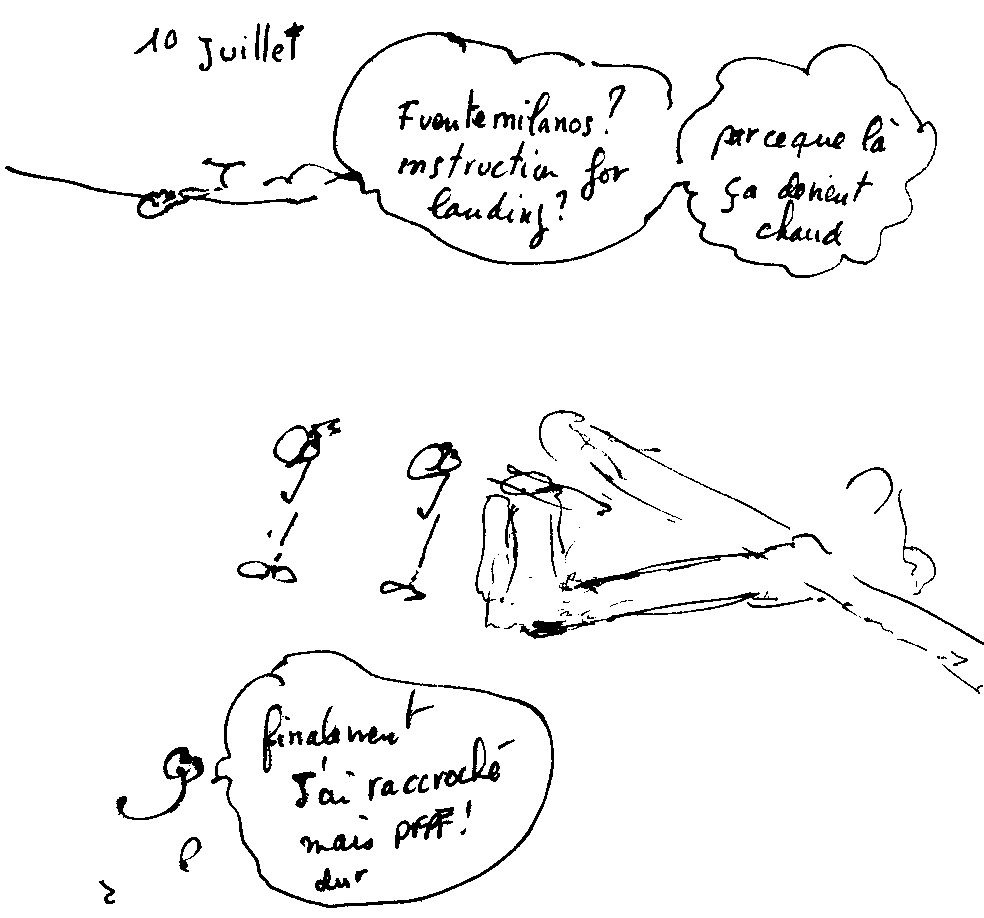 10 Juillet
Fuentemilanos?
instruction for
landing?
parceque là
ça devient
chaud
finalement
J'ai raccroché
mais pfff!
dur